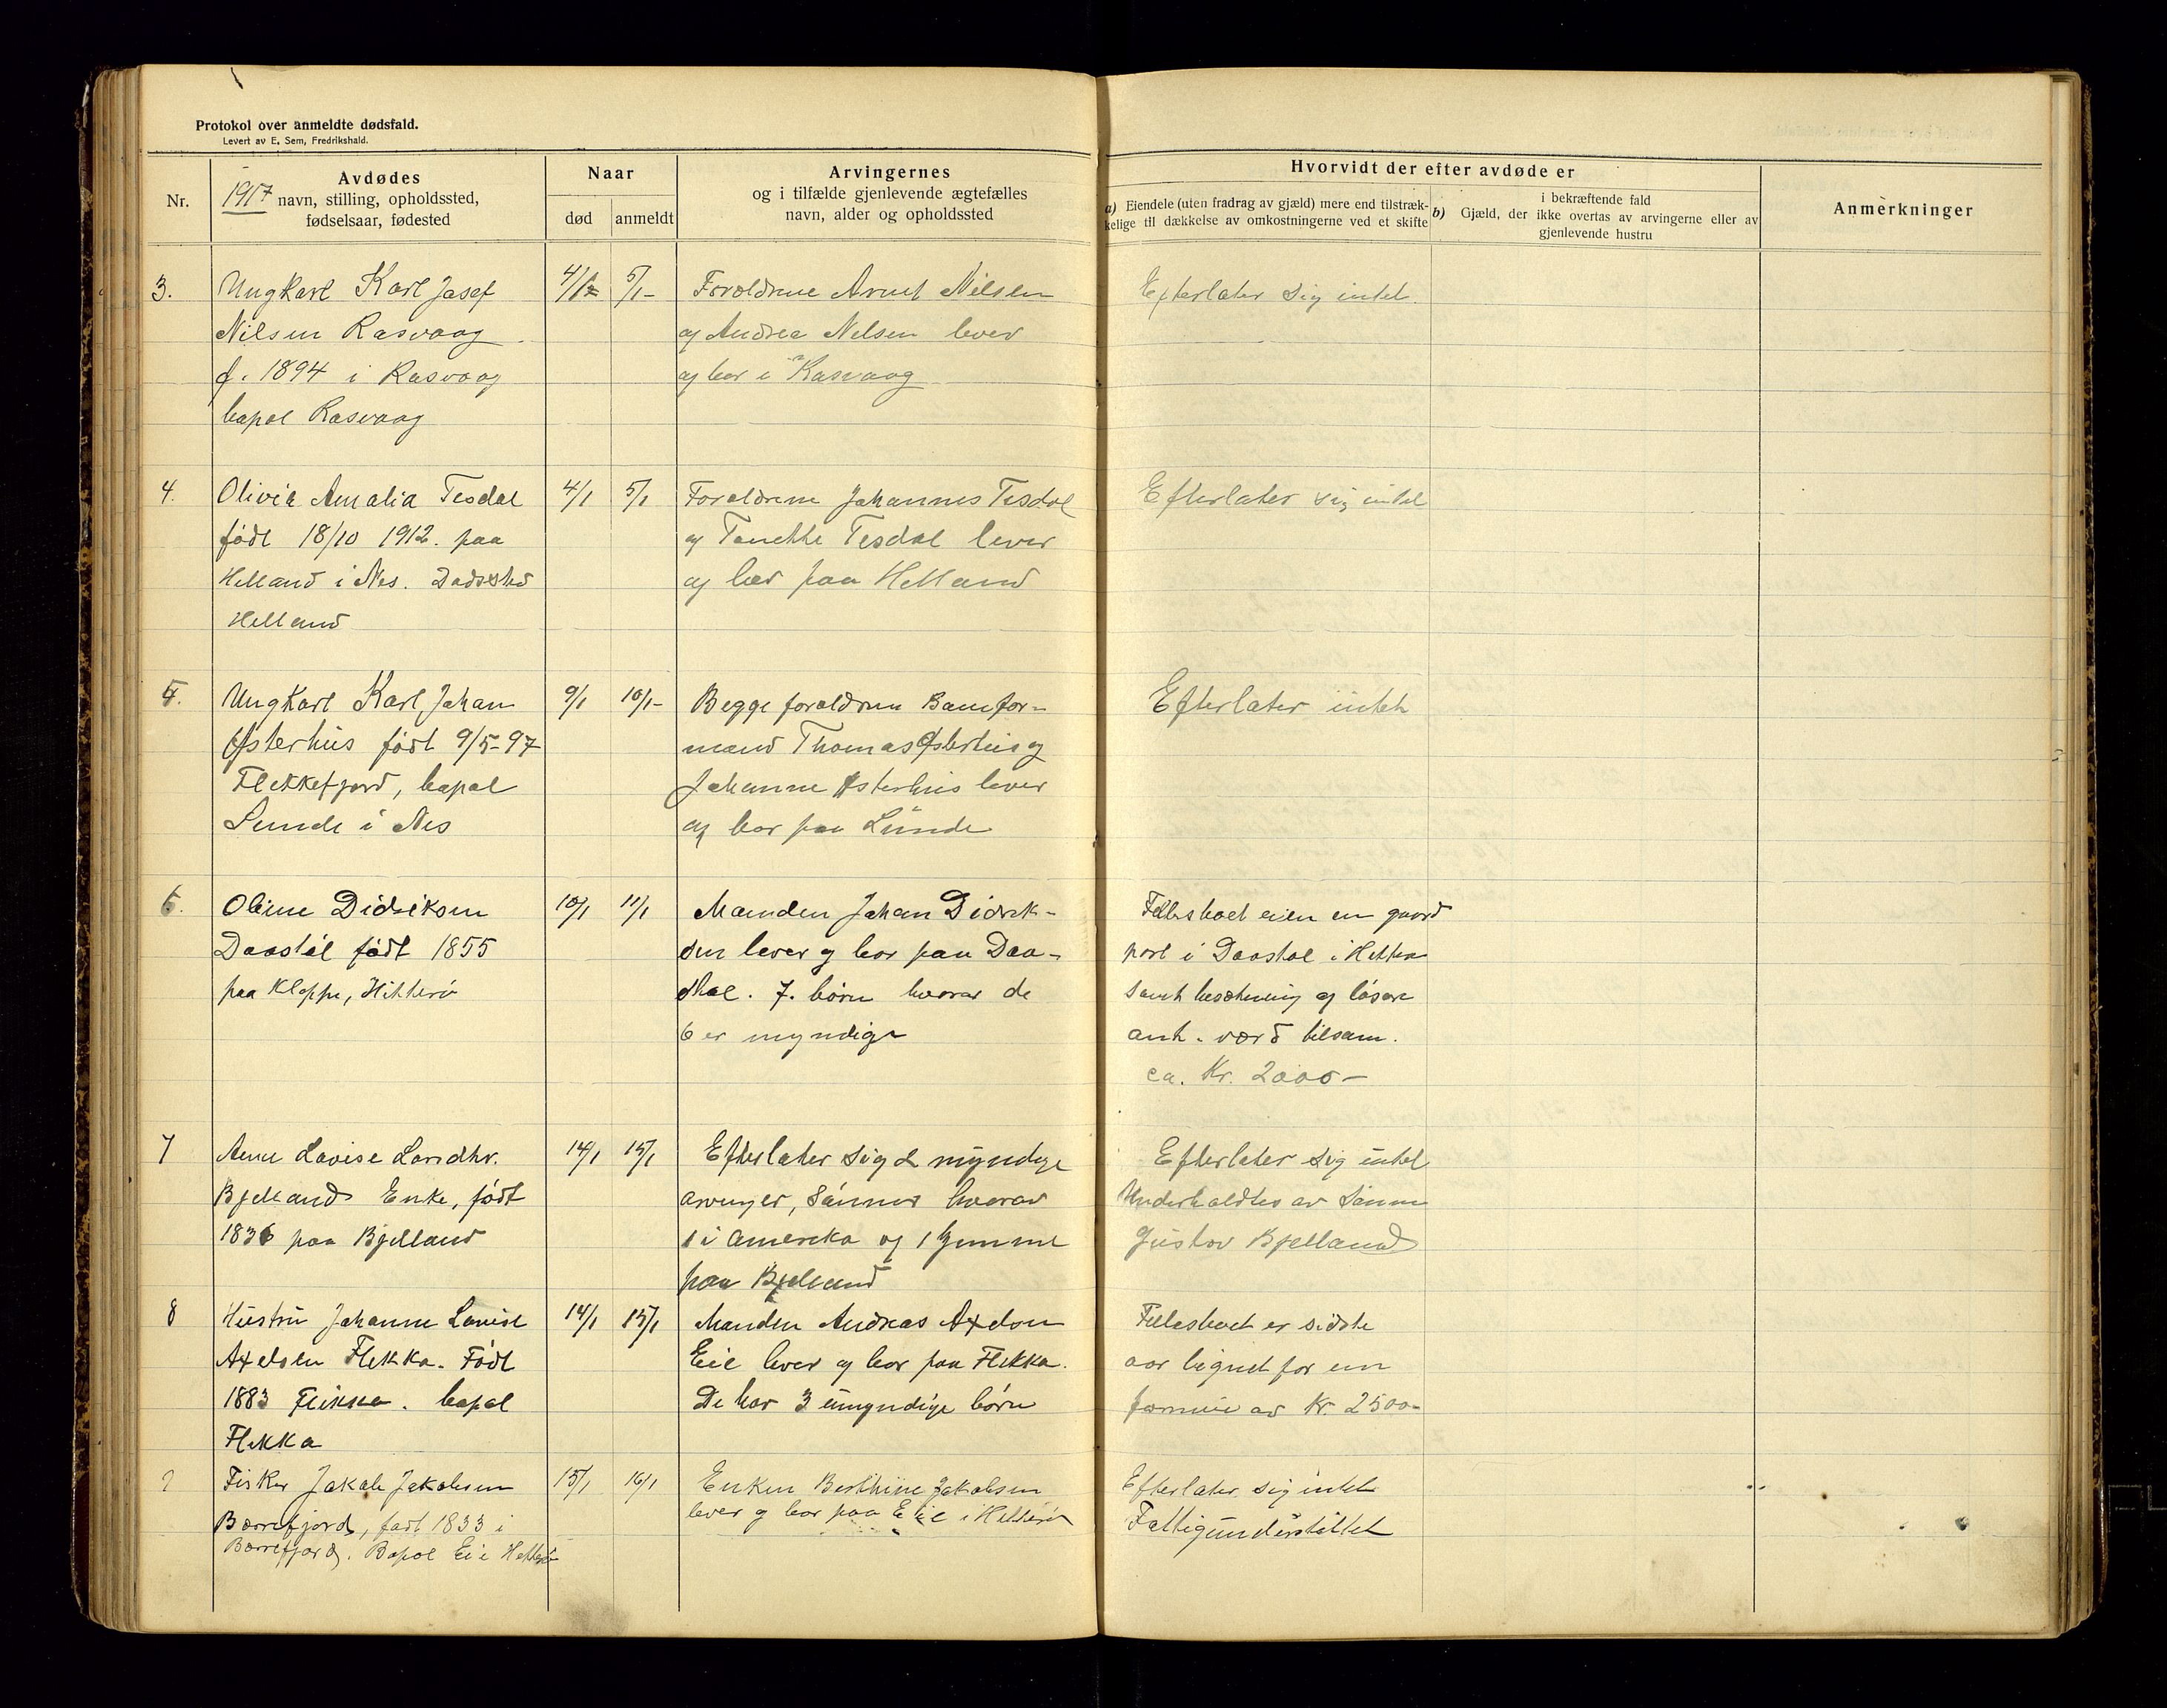 Protokol over anmeldte dødsfald.
Levert av E. Sem, Fredrikshald.
Nr.
1917
Avdødes
navn, stilling, opholdssted,
fødselsaar, fødested
Naar
død
anmeldt
Arvingernes
og i tilfælde gjenlevende ægtefælles
navn, alder og opholdssted
Hvorvidt der efter avdøde er
a) Eiendele (uten fradrag av gjæld) mere end tilstræk-
kelige til dækkelse av omkostningerne ved et skifte
b)
i bekræftende fald
Gjæld, der ikke overtas av arvingerne eller av
gjenlevende hustru
Anmerkninger
3.
Ungkarl Karl Josef
Nilsen Rasvaag
f. 1894 i Rasvaag
bopæl Rasvaag
4/1
5/1-
Forældrene Arnt Nilsen
og Andrea Nilsen lever
og bor i Rasvaag
Efterlater sig intet.
4.
Olivia Amalia Tesdal
født 18/10 1912. paa
Helland i Nes. Dødssted
Helland
4/1
5/1
Forældrene Johannes Tesdal
og Tonette Tesdal lever
og bor paa Helland
Efterlater sig intet
5.
Ungkarl Karl Johan
Østerhus født 9/5-97
Flekkefjord, bopæl
Lunde i Nes
9/1
10/1-
Begge forældrene Banefor-
mand Thomas Østerhus og
Johanne Østerhus lever
og bor paa Lunde
Efterlater intet
6.
Oline Didriksen
Daastøl født 1855
paa Kloppe, Hitterø
10/1
11/1
Manden Johan Didrik-
sen lever og bor paa Daa-
støl. 7. børn hvorav de
6 er myndige
Fellesboet eier en gaard
part i Daastøl i Hitterø
samt besætning og løsøre
ant. værd tilsam.
ca. Kr. 2000-
7
Anne Lovise Larsdtr.
Bjelland Enke, født
1836 paa Bjelland
14/1
15/1
Efterlater sig 2 myndige
arvinger, sønner hvorav
1 i Amerika og 1 hjemme
paa Bjelland
Efterlater sig intet
Underholdtes av sønnen
Gustav Bjelland
8
Hustru Johanne Lovise
Axelsen Flekka. Født
1883 Flikka. bopæl
Flekka
14/1
15/1
Manden Andreas Axelsen
Eie lever og bor paa Flekka.
De har 3 umyndige børn
Fellesboet er sidste
aar lignet for en
formue av Kr. 2500-
Fisker Jakob Jakobsen
Børrefjord, født 1833 i
Børrefjord. Bopæl Eie Hitterø
15/1
16/1
Enken Berthine Jakobsen
lever og bor paa Eie i Hitterø
Efterlater sig intet
Fattigunderstøttet